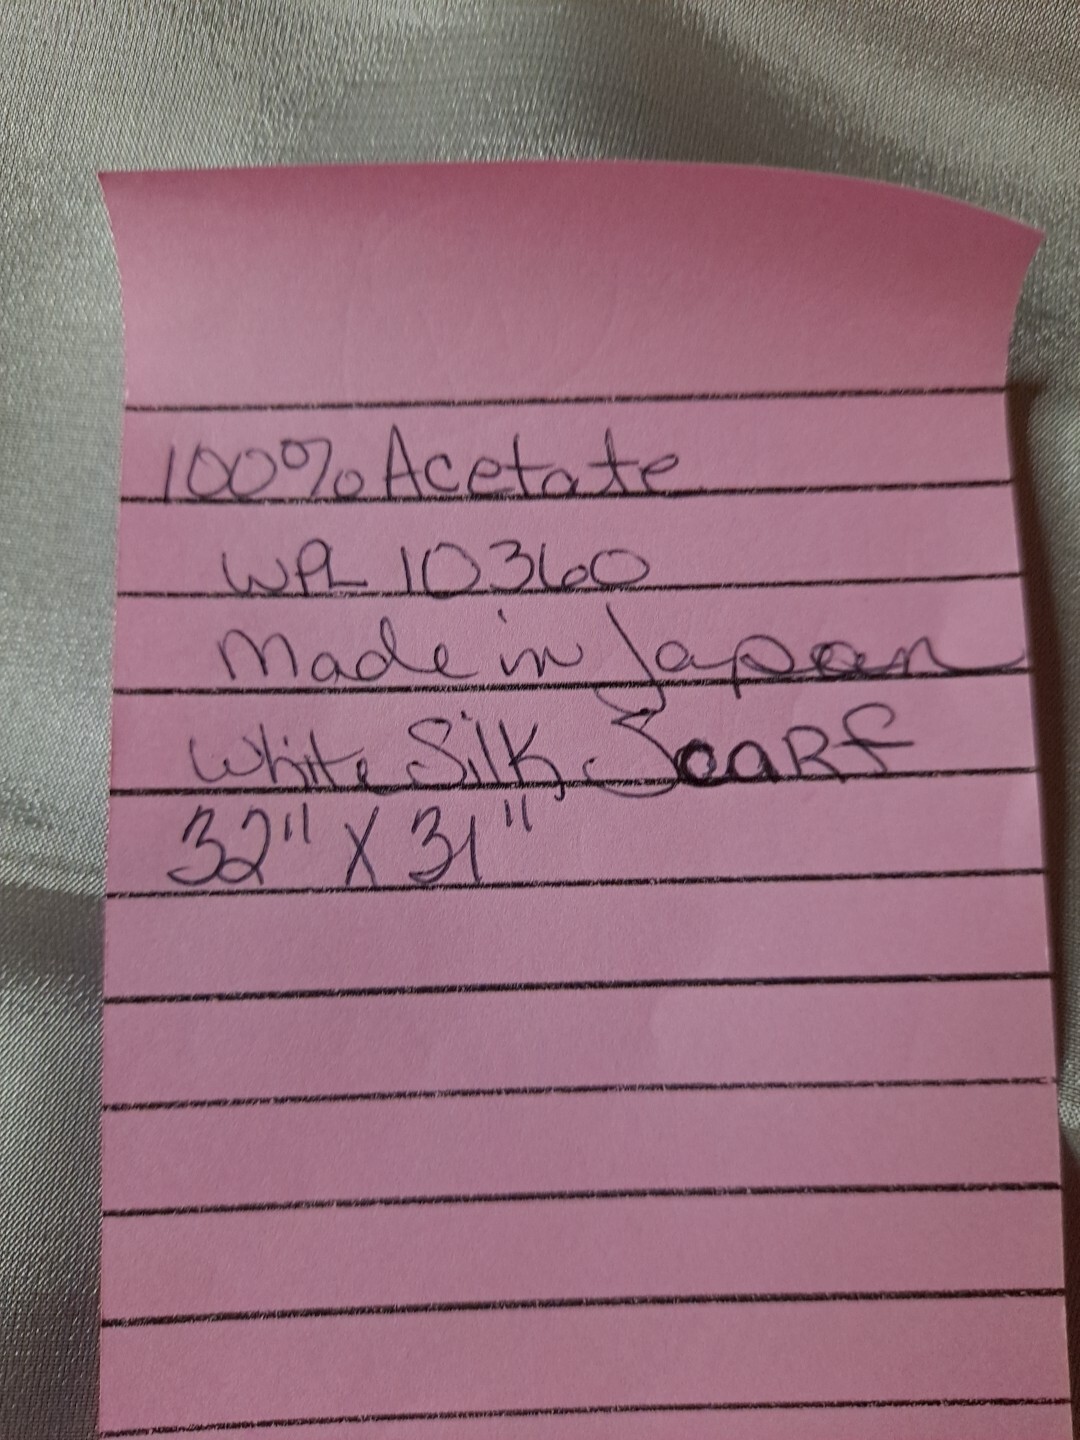 100% Acetate
WPL 10360
Made in Japan
White Silk Scarf
32" X 31"